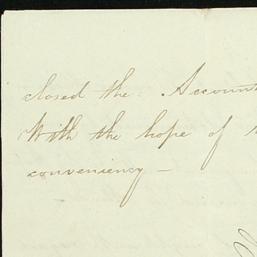 closed the Account
With the hope of
conveniency –